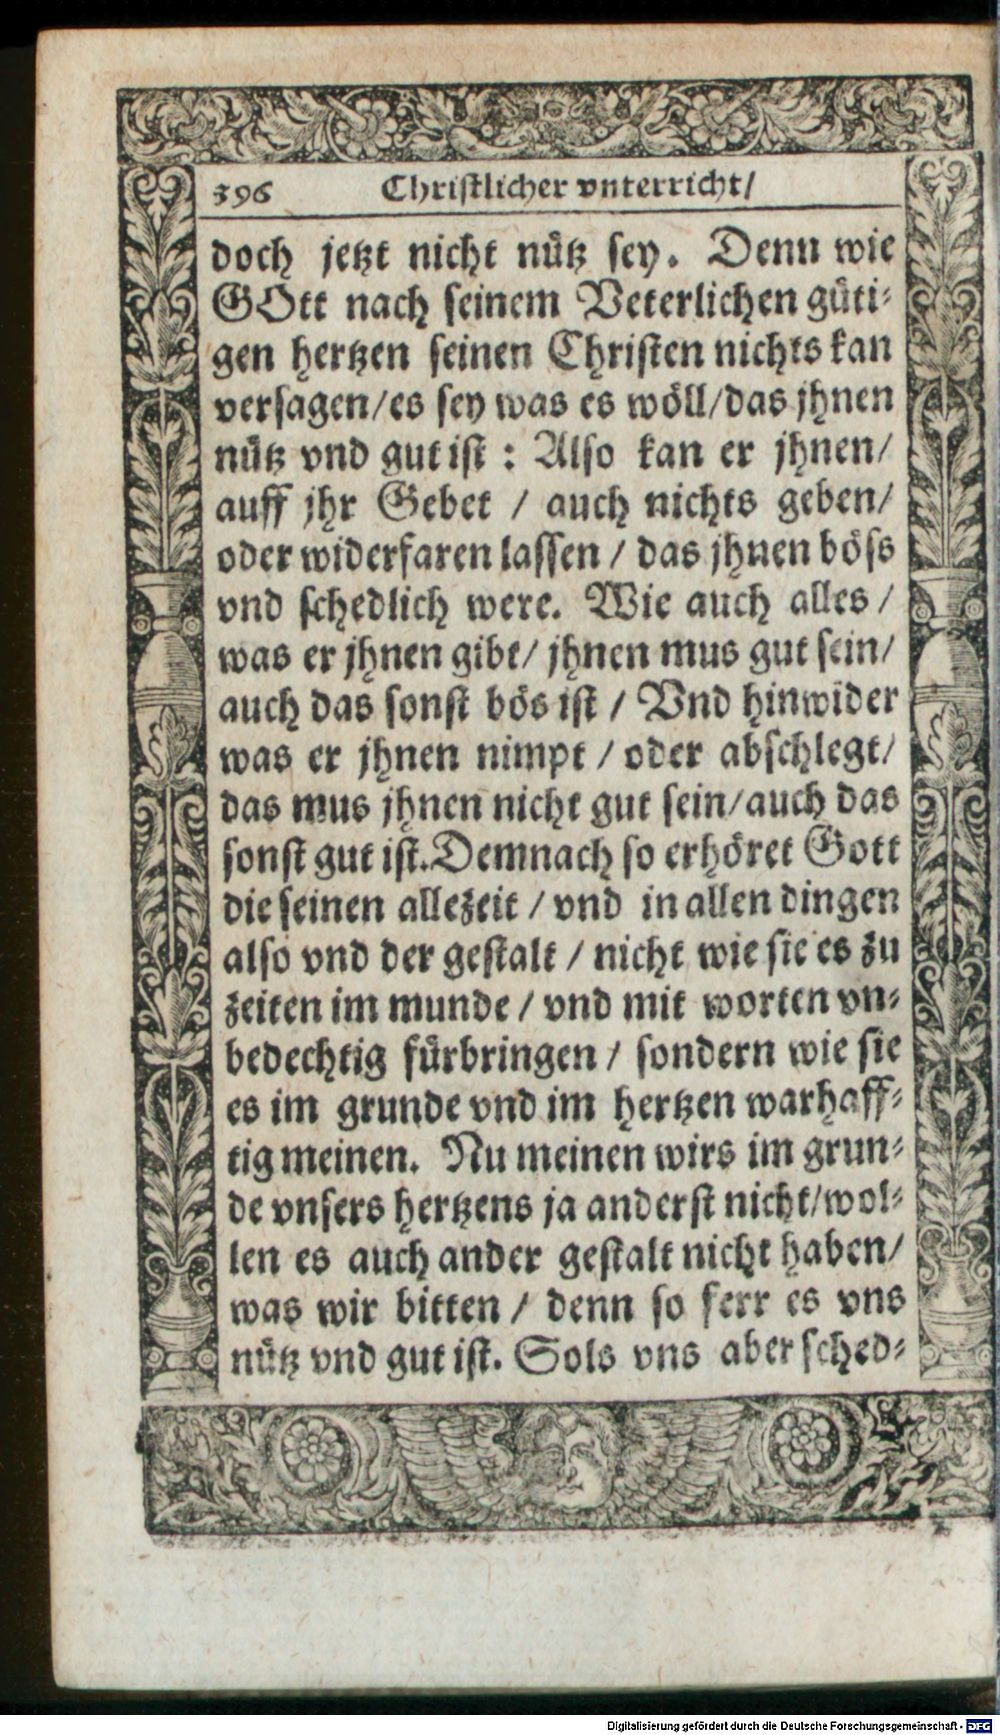 396 Christlicher vnterricht/
doch jetzt nicht nütz sey. Denn wie
GOtt nach seinem Veterlichen güti-
gen hertzen seinen Christen nichts kan
versagen/es sey was es wöll/das jhnen
nütz vnd gut ist : Also kan er jhnen/
auff jhr Gebet / auch nichts geben/
oder widerfaren lassen / das jhnen böss
vnd schedlich were. Wie auch alles /
was er jhnen gibt/ jhnen mus gut sein/
auch das sonst bös ist / Vnd hinwider
was er jhnen nimpt / oder abschlegt/
das mus jhnen nicht gut sein/auch das
sonst gut ist.Demnach so erhöret Gott
die seinen allezeit / vnd in allen dingen
also vnd der gestalt / nicht wie sie es zu
zeiten im munde / vnd mit worten vn-
bedechtig fürbringen / sondern wie sie
es im grunde vnd im hertzen warhaff-
tig meinen. Nu meinen wirs im grun-
de vnsers hertzens ja anderst nicht/wol-
len es auch ander gestalt nicht haben/
was wir bitten / denn so ferr es vns
nütz vnd gut ist. Sols vns aber sched-
Digitalisierung gefördert durch die Deutsche Forschungsgemeinschaft - DFG